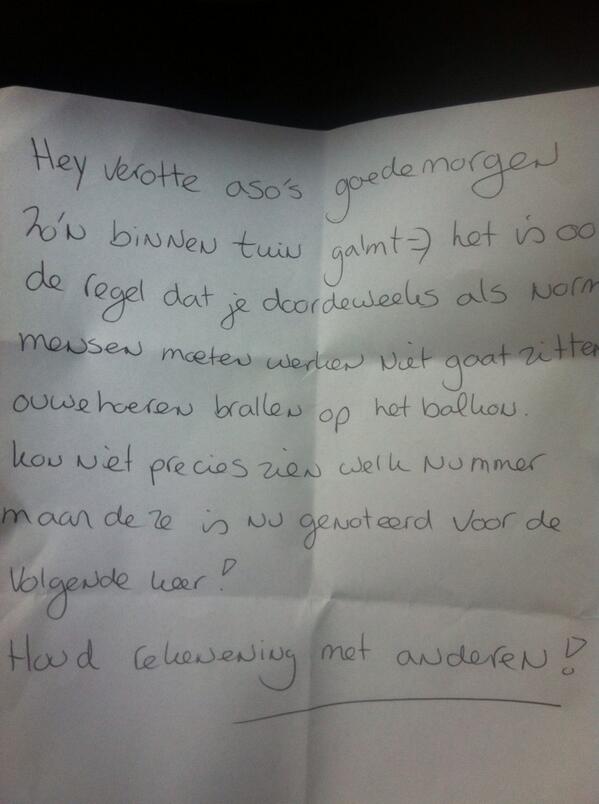 Hey verotte aso's goedemorgen
Zo'n binnen tuin galmt => het is oo
de regel dat je doordeweeks als norm
mensen moeten werken niet gaat zitten
ouwehoeren brallen op het balkon.
kon niet precies zien welk nummer
maar deze is nu genoteerd voor de
volgende keer!
Houd rekenening met anderen!